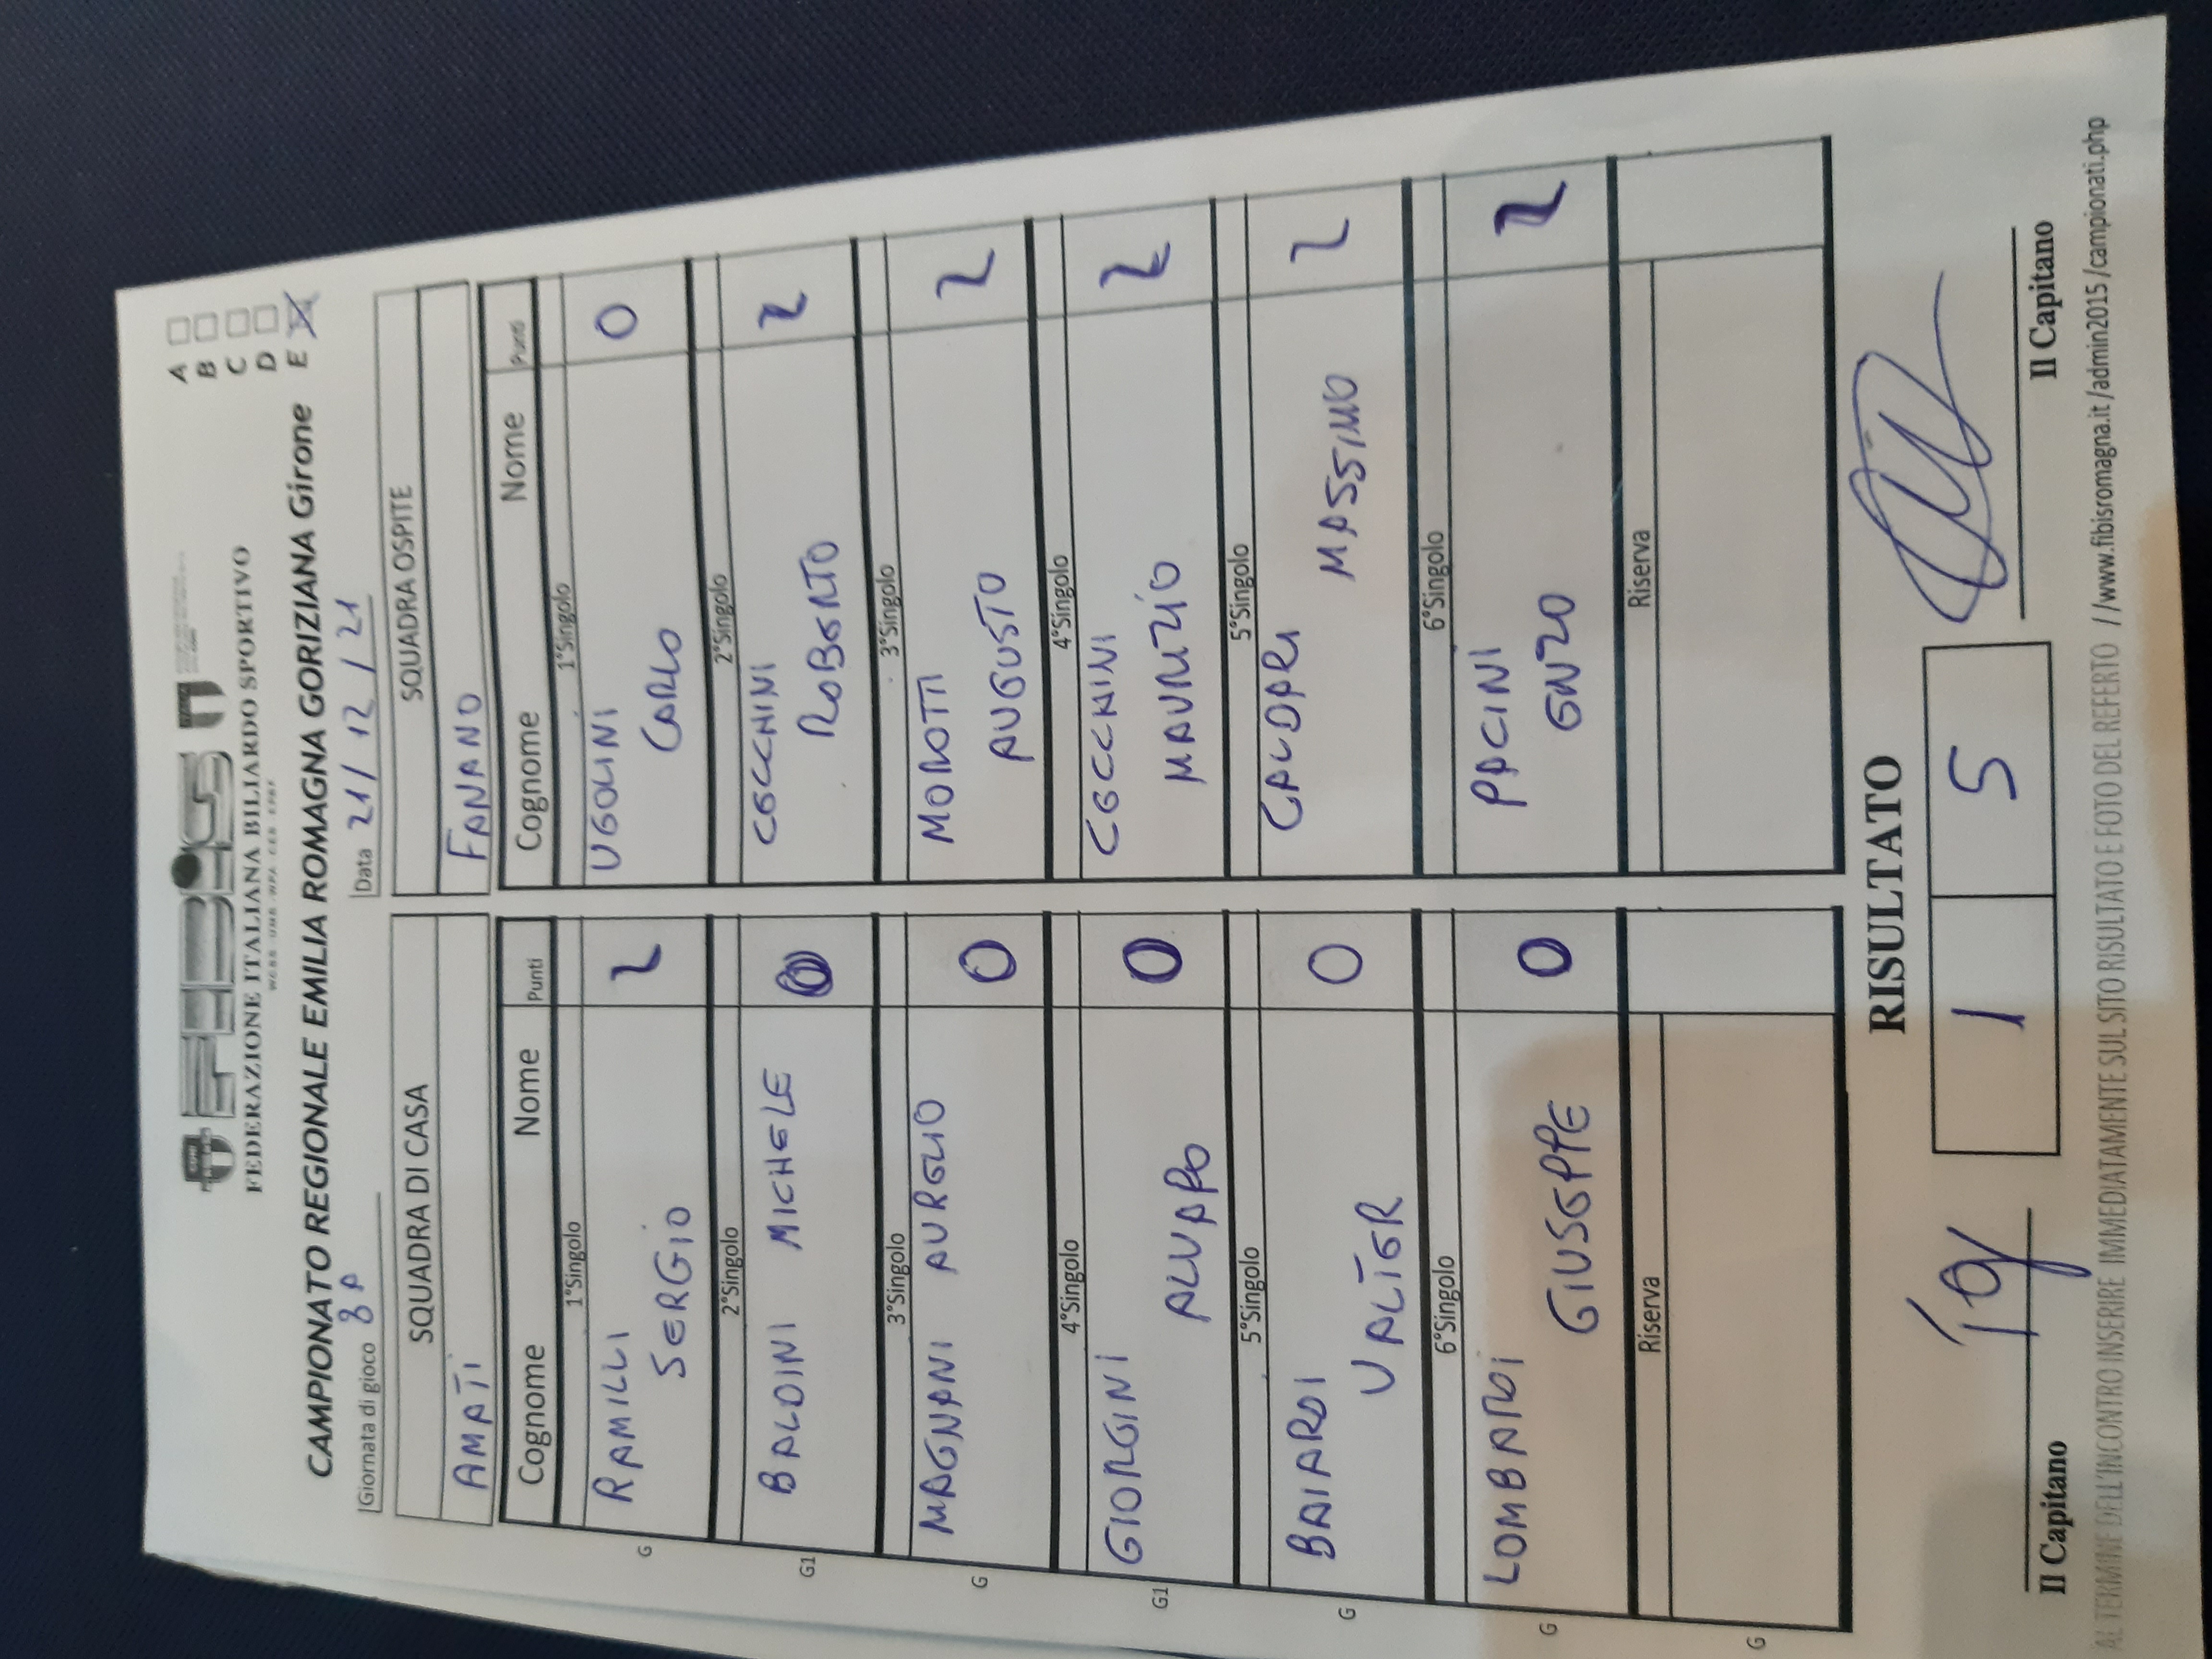 FEDERAZIONE ITALIANA BILIARDO SPORTIVO
A
B
C
D
E
CAMPIONATO REGIONALE EMILIA ROMAGNA GORIZIANA Girone
Giornata di gioco 8A
Data 21/12/21
SQUADRA DI CASA
AMATI
Cognome Nome Punti
1°Singolo
G RAMILLI SERGIO 2
2°Singolo
G1 BALDINI MICHELE 0
3°Singolo
G MAGNANI AURELIO 0
4°Singolo
G1 GIORGINI ALVARO 0
5°Singolo
G BAIARDI VALTER 0
6°Singolo
G LOMBARDI GIUSEPPE 0
Riserva
G
SQUADRA OSPITE
FANANO
Cognome Nome Punti
1°Singolo
UGOLINI CARLO 0
2°Singolo
CECCHINI ROBERTO 2
3°Singolo
MOROTTI AUGUSTO 2
4°Singolo
CECCHINI MAURIZIO 2
5°Singolo
CALDARI MASSIMO 2
6°Singolo
PACINI ENZO 2
Riserva
RISULTATO
1 5
Il Capitano
Il Capitano
AL TERMINE DELL'INCONTRO INSERIRE IMMEDIATAMENTE SUL SITO RISULTATO E FOTO DEL REFERTO //www.fibisromagna.it/admin2015/campionati.php